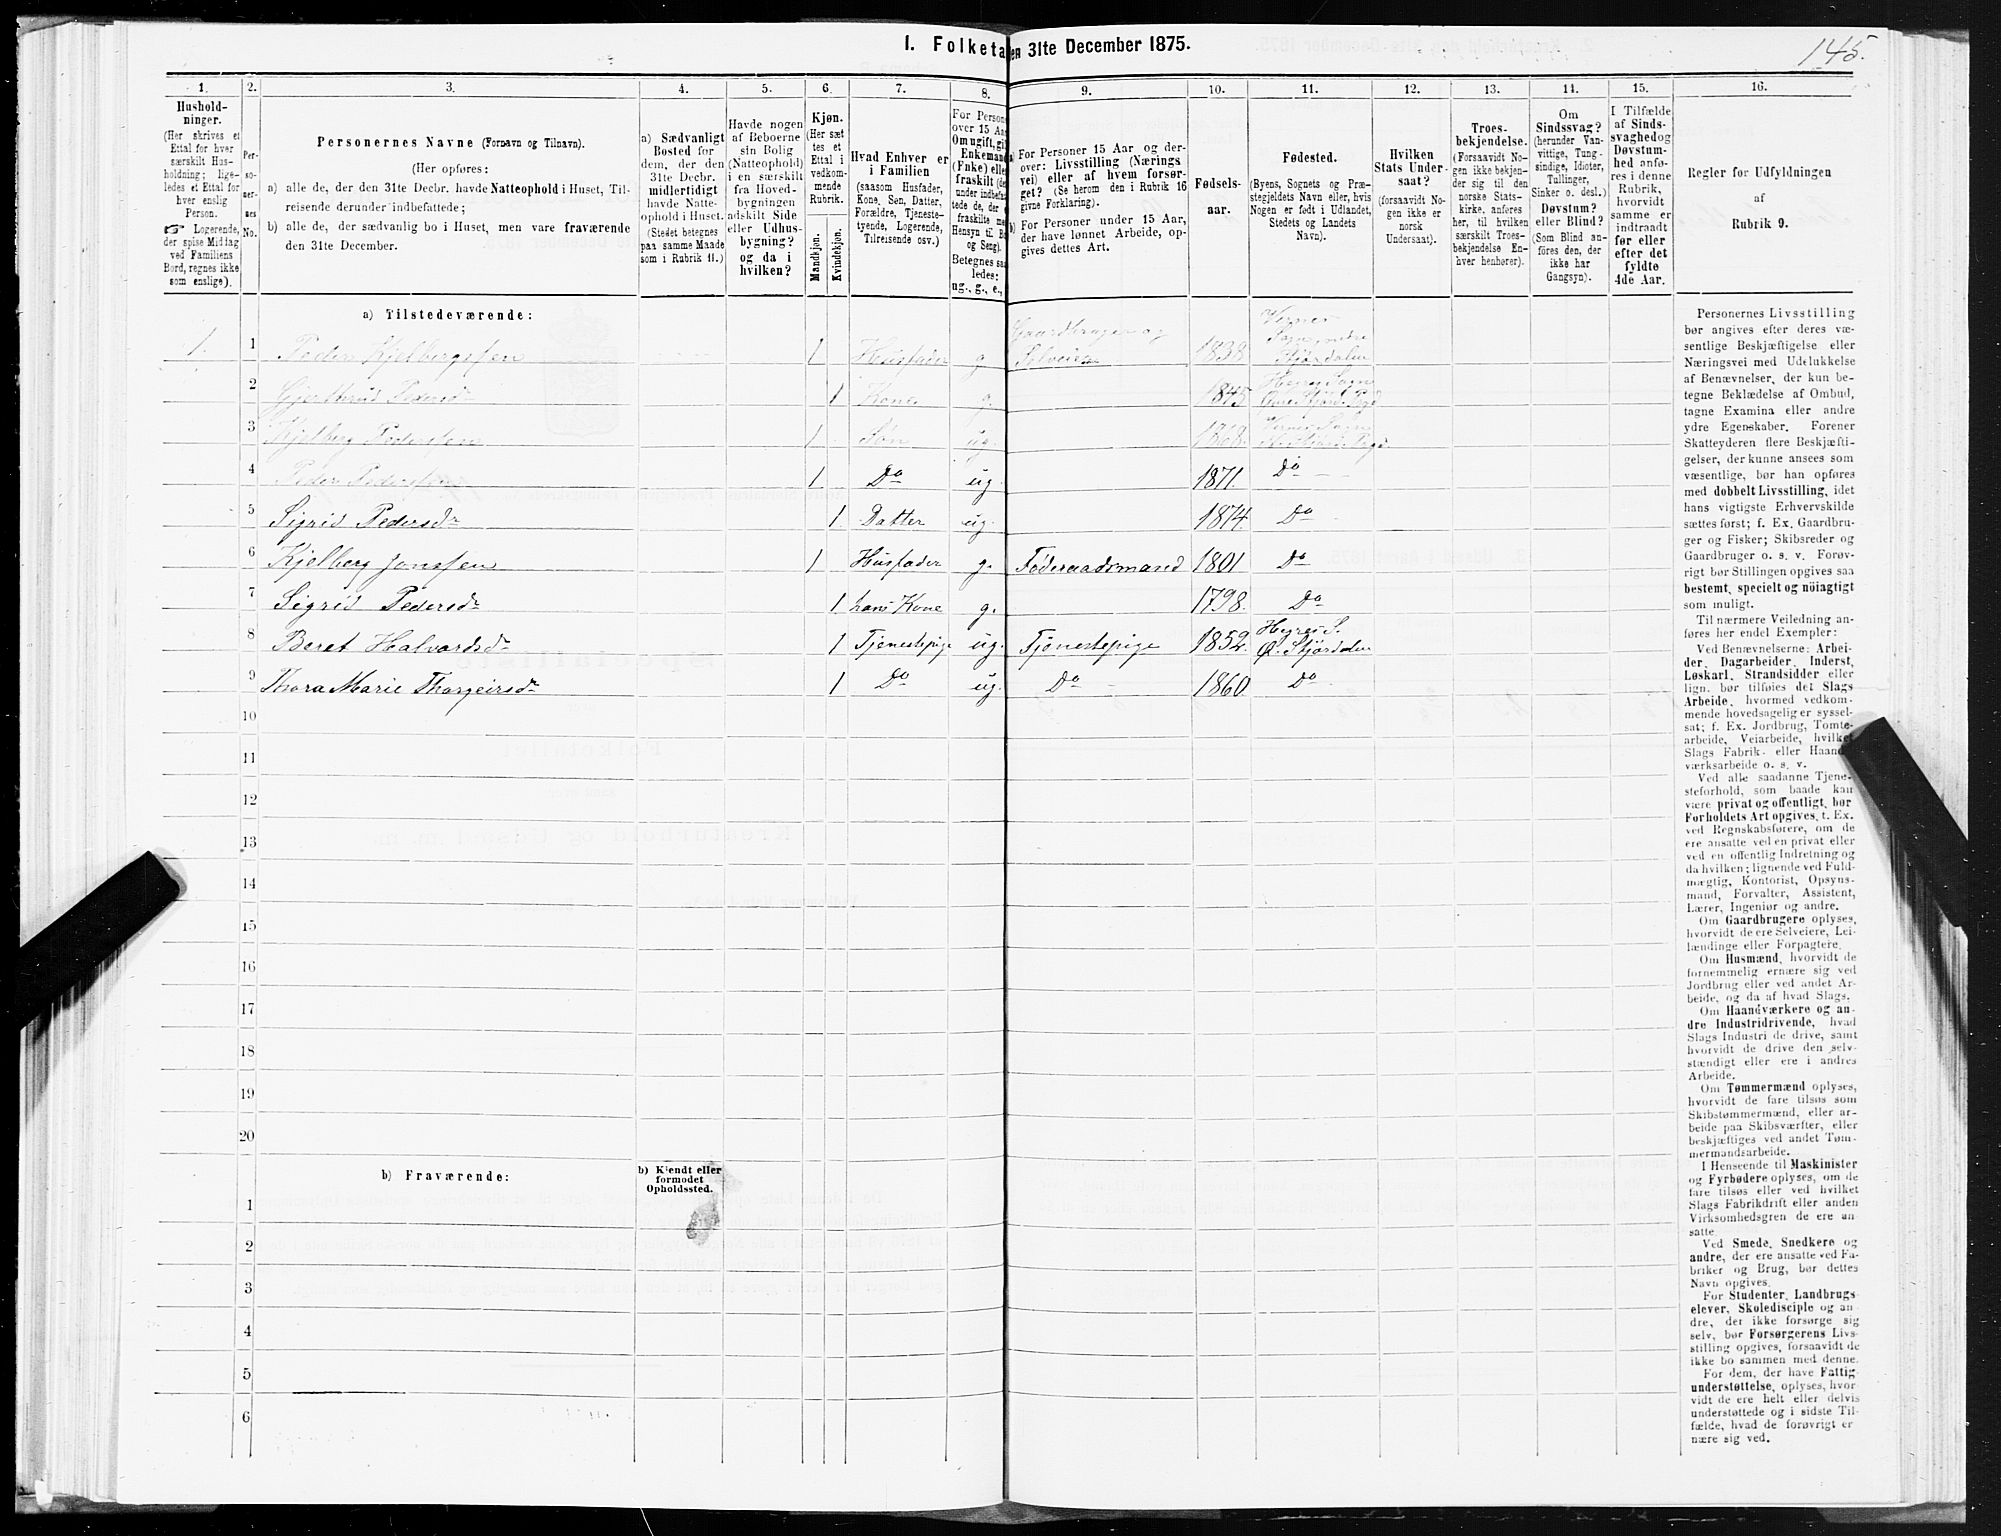 1. Folketa en 31te December 1875.
145.
1.
Hushold-
ninger.
(Her skrives et
Ettal for hver
særskilt Hus-
holdning; lige-
ledes et Ettal for
hver enslig
Person.
☞ Logerende,
der spise Middag
ved Familiens
Bord, regnes ikke
som enslige).
2.
Per-
so-
ner-
nes
No.
3.
Personernes Navne (Fornavn og Tilnavn).
(Her opføres:
a) alle de, der den 31te Decbr. havde Natteophold i Huset, Til-
reisende derunder indbefattede;
b) alle de, der sædvanlig bo i Huset, men vare fraværende
den 31te December.
4.
a) Sædvanligt
Bosted for
dem, der den
31te Decbr.
midlertidigt
havde Natte-
ophold i Huset.
(Stedet betegnes
paa samme Maade
som i Rubrik 11.)
5.
Havde nogen
af Beboerne
sin Bolig
(Natteophold)
i en særskilt
fra Hoved-
bygningen
adskilt Side
eller Udhus-
bygning?
og da i
hvilken?
6.
Kjøn.
(Her sæt
tes et
Ettal i
vedkom-
mende
Rubrik.
Mandkjøn.
Kvindekjøn.
7.
Hvad Enhver er
i Familien
(saasom Husfader,
Kone, Søn, Datter,
Forældre, Tjeneste-
tyende, Logerende,
Tilreisende osv.)
8.
For Persone
over 15 Aa
Om ugift, gi
Enkemand
(Fnke) elle
fraskilt (de
under indbefat
tede de,
fraskilte me
Hensyn til Bo
og Seng).
Betegnes saa
ledes:
ug., g., e.,
9.
a) For Personer 15 Aar og der-
over: Livsstilling (Nærings
vei) eller af hvem forsør-
get? (Se herom den i Rubrik 16
givne Forklaring).
b) For Personer under 15 Aar,
der have lønnet Arbeide, op-
gives dettes Art.
10.
Fødsels-
aar.
11.
Fødested.
(Byens, Sognets og Præ-
stegjeldets Navn eller, hvis
Nogen er født i Udlandet,
Stedets og Landets
Navn).
12.
Hvilken
Stats Under-
saat?
(forsaavidt No-
gen ikke er
norsk
Undersaat).
13.
Troes-
bekjendelse.
(Forsaavidt No-
gen ikke bekjen-
der sig til den
norske Stats-
kirke, anføres
her, til hvilken
særskilt Troes-
bekjendelse En-
hver henhører).
14.
Om
Sindssvag?
(herunder Van-
vittige, Tung-
sindige, Idioter,
Tullinger,
Sinker o. desl.)
Døvstum?
eller Blind?
(Som Blind an-
føres den, der
ikke har
Gangsyn).
15.
I Tilfælde
af Sinds-
svaghed og
Døvstum-
hed anfø-
res i denne
Rubrik,
hvorvidt
samme er
indtraadt
før eller
efter det
fyldte
4de Aar.
16.
Regler for Udfyldningen
af
Rubrik 9.
a) Tilstedeværende:
1. 1 Peder Kjelbergssen 1 Husfader g Gaardbruger og Selveier 1838 Vernes Sogn, nedre Stjørdalen
2 Gjertrud Pedersdr 1 Kone g. 1845 Hegre Sogn Øvre Stjørd. Pregd
3 Kjelberg Pederssen 1 Søn ug. 1868. Vernes Sogn N. Stjørd. Prgd
4 Peder Pederssen 1 Do ug. 1871. Do
5 Sigrid Pedersdr 1 Datter ug. 1874. Do
6 Kjelberg Jonssen 1 Husfader g. Føderaadsmand 1801 Do
7 Sigrid Pedersdr 1 hans Kone g. 1798. Do
8 Beret Halvardsdr 1 Tjenestepige ug. Tjenestepige 1852. Hegres S. Ø. Stjørdalen
9 Thora Marie Thorgeirsdr 1 Do ug. Do 1860. Do
10
11
12
13
14
15
16
17
18
19
20
b) Fraværende:
b) Kjendt eller
formodet
Opholdssted.
1
2
3
4
5
6
Personernes Livsstilling
bør angives efter deres væ-
sentlige Beskjæftigelse eller
Næringsvei med Udelukkelse
af Benævnelser, der kun be-
tegne Beklædelse af Ombud,
tagne Examina eller andre
ydre Egenskaber. Forener
Skatteyderen flere Beskjæfti-
gelser, der kunne ansees som
væsentlige, bør han opføres
med dobbelt Livsstilling, idet
hans vigtigste Erhvervskilde
sættes først; f. Ex. Gaardbru-
ger og Fisker; Skibsreder og
Gaardbruger o. s. v. Forøv-
rigt bør Stillingen opgives saa
bestemt, specielt og nöiagtigt
som muligt.
Til nærmere Veiledning an-
føres her endel Exempler:
Ved Benævnelserne: Arbei-
der, Dagarbeider, Inderst,
Løskarl, Strandsidder eller
lign. bør tilføies det Slags
Arbeide, hvormed vedkom-
mende hovedsagelig er syssel-
sat; f. Ex. Jordbrug, Tomte-
arbeide, Veiarbeide, hvilket
Slags Fabrik- eller Haand-
værksarbeide o. s. v.
Ved alle saadanne Tjene-
steforhold, som baade kan
være privat og offentligt, bør
Forholdets Art opgives, t. Ex.
ved Regnskabsførere, om de
ere ansatte ved en privat eller
ved en offentlig Indretning og
da hvilken; lignende ved Fuld-
mægtig, Kontorist, Opsyns-
mand, Forvalter, Assistent,
Lærer, Ingeniør og andre.
Om Gaardbrugere oplyses,
hvorvidt de ere Selveiere, Lei-
lændinge eller Forpagtere.
Om Husmænd, hvorvidt de
fornemmelig ernære sig ved
Jordbrug eller ved andet Ar-
beide, og da af hvad Slags.
Om Haandværkere og an-
dre Industridrivende, hvad
Slags Industri de drive, samt
hvorvidt de drive den selv-
stændigt eller ere i andres
Arbeide.
Om Tømmermænd oplyses,
hvorvidt de fare tilsøs som
Skibstømmermænd, eller ar-
beide paa Skibsværfter, eller
beskjæftiges ved andet Tøm-
mermandsarbeide.
I Henseende til Maskinister
og Fyrbødere oplyses, om de
fare tilsøs eller ved hvilket
Slags Fabrikdrift eller anden
Virksomhedsgren de ere an-
satte.
Ved Smede, Snedkere og
andre, der ere ansatte ved Fa-
briker og Brug, bør dettes
Navn opgives.
For Studenter, Landbrugs-
elever, Skoledisciple og an-
dre, der ikke forsørge sig
selv, bør Forsørgerens Livs-
stilling opgives, forsaavidt de
ikke bo sammen med denne.
For dem, der have Fattig-
understøttelse, oplyses, hvor-
vidt de ere helt eller delvis
understøttede og i sidste Til-
fælde, hvad de forøvrigt er
nære sig ved.